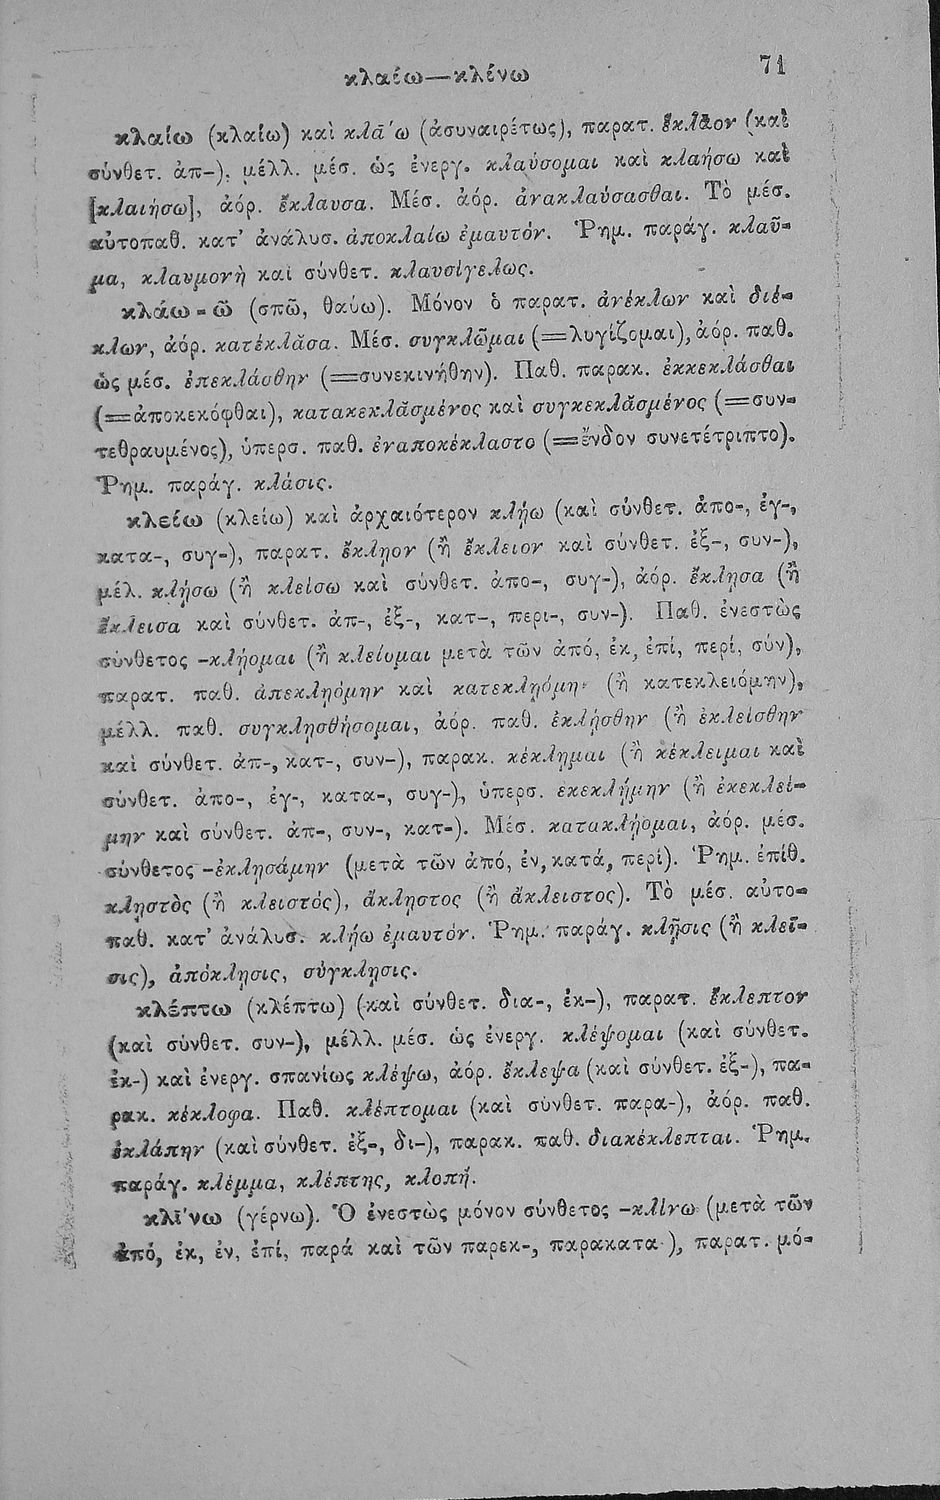 κλαίω—κλίνω 71
κλαίω (κλαίω) καὶ κλᾱ́ω (ἀσυναιρέτως), παρατ. ἔκλᾱον (καὶ
σύνθετ. ἀπ-), μέλλ. μέσ. ὡς ἐνεργ. κλαύσομαι καὶ κλαήσω καὶ
[κλαιήσω], ἀόρ. ἔκλαυσα. Μέσ. ἀόρ. ἀνακλαύσασθαι. Τὸ μέσ.
αὐτοπαθ. κατ’ ἀνάλυσ. ἀποκλαίω ἐμαυτόν. Ῥημ. παράγ. κλαῦ-
μα, κλαυμονὴ καὶ σύνθετ. κλαυσίγελως.
κλάω-ῶ (σπῶ, θαύω). Μόνον ὁ παρατ. ἀνέκλων καὶ διέ-
κλων, ἀόρ. κατέκλᾰσα. Μέσ. συγκλῶμαι (=λυγίζομαι), ἀόρ. παθ.
ὡς μέσ. ἐπεκλάσθην (=συνεκινήθην). Παθ. παρακ. ἐκκεκλάσθαι
(=ἀποκεκόφθαι), κατακεκλᾰσμένος καὶ συγκεκλᾰσμένος (=συν-
τεθραυμένος), ὑπερσ. παθ. ἐναποκέκλαστο (=ἔνδον συνετέτριπτο).
Ῥημ. παράγ. κλάσις.
κλείω (κλείω) καὶ ἀρχαιότερον κλῄω (καὶ σύνθετ. ἀπο-, ἐγ-,
κατα-, συγ-), παρατ. ἔκλῃον (ἢ ἔκλειον καὶ σύνθετ. ἐξ-, συν-),
μέλ. κλῄσω (ἢ κλείσω καὶ σύνθετ. ἀπο-, συγ-), ἀόρ. ἔκλῃσα (ἢ
ἔκλεισα καὶ σύνθετ. ἀπ-, ἐξ-, κατ-, περι-, συν-). Παθ. ἐνεστὼς
σύνθετος -κλῄομαι (ἢ κλείομαι μετὰ τῶν ἀπό, ἐκ, ἐπί, περί, σύν),
παρατ. παθ. ἀπεκλῃόμην καὶ κατεκλῃόμην (ἢ κατεκλειόμην),
μέλλ. παθ. συγκλῃσθήσομαι, ἀόρ. παθ. ἐκλῄσθην (ἢ ἐκλείσθην
καὶ σύνθετ. ἀπ-, κατ-, συν-), παρακ. κέκλῃμαι (ἢ κέκλειμαι καὶ
σύνθετ. ἀπο-, ἐγ-, κατα-, συγ-), ὑπερσ. ἐκεκλῄμην (ἢ ἐκεκλεί-
μην καὶ σύνθετ. ἀπ-, συν-, κατ-). Μέσ. κατακλῄομαι, ἀόρ. μέσ.
σύνθετος -ἐκλῃσάμην (μετὰ τῶν ἀπό, ἐν, κατά, περί). Ῥημ. ἐπίθ.
κλῃστὸς (ἢ κλειστός), ἄκλῃστος (ἢ ἄκλειστος). Τὸ μέσ. αὐτο-
παθ. κατ’ ἀνάλυσ. κλῄω ἐμαυτόν. Ῥημ. παράγ. κλῇσις (ἢ κλεῖ-
σις), ἀπόκλῃσις, σύγκλῃσις.
κλέπτω (κλέπτω) (καὶ σύνθετ. δια-, ἐκ-), παρατ. ἔκλεπτον
(καὶ σύνθετ. συν-), μέλλ. μέσ. ὡς ἐνεργ. κλέψομαι (καὶ σύνθετ.
ἐκ-) καὶ ἐνεργ. σπανίως κλέψω, ἀόρ. ἔκλεψα (καὶ σύνθετ. ἐξ-), πα-
ρακ. κέκλοφα. Παθ. κλέπτομαι (καὶ σύνθετ. παρα-), ἀόρ. παθ.
ἐκλάπην (καὶ σύνθετ. ἐξ-, δι-), παρακ. παθ. διακέκλεπται. Ῥημ.
παράγ. κλέμμα, κλέπτης, κλοπή.
κλῑ́νω (γέρνω). Ὁ ἐνεστὼς μόνον σύνθετος -κλίνω (μετὰ τῶν
ἀπό, ἐκ, ἐν, ἐπί, παρά καὶ τῶν παρεκ-, παρακατα-), παρατ. μό-